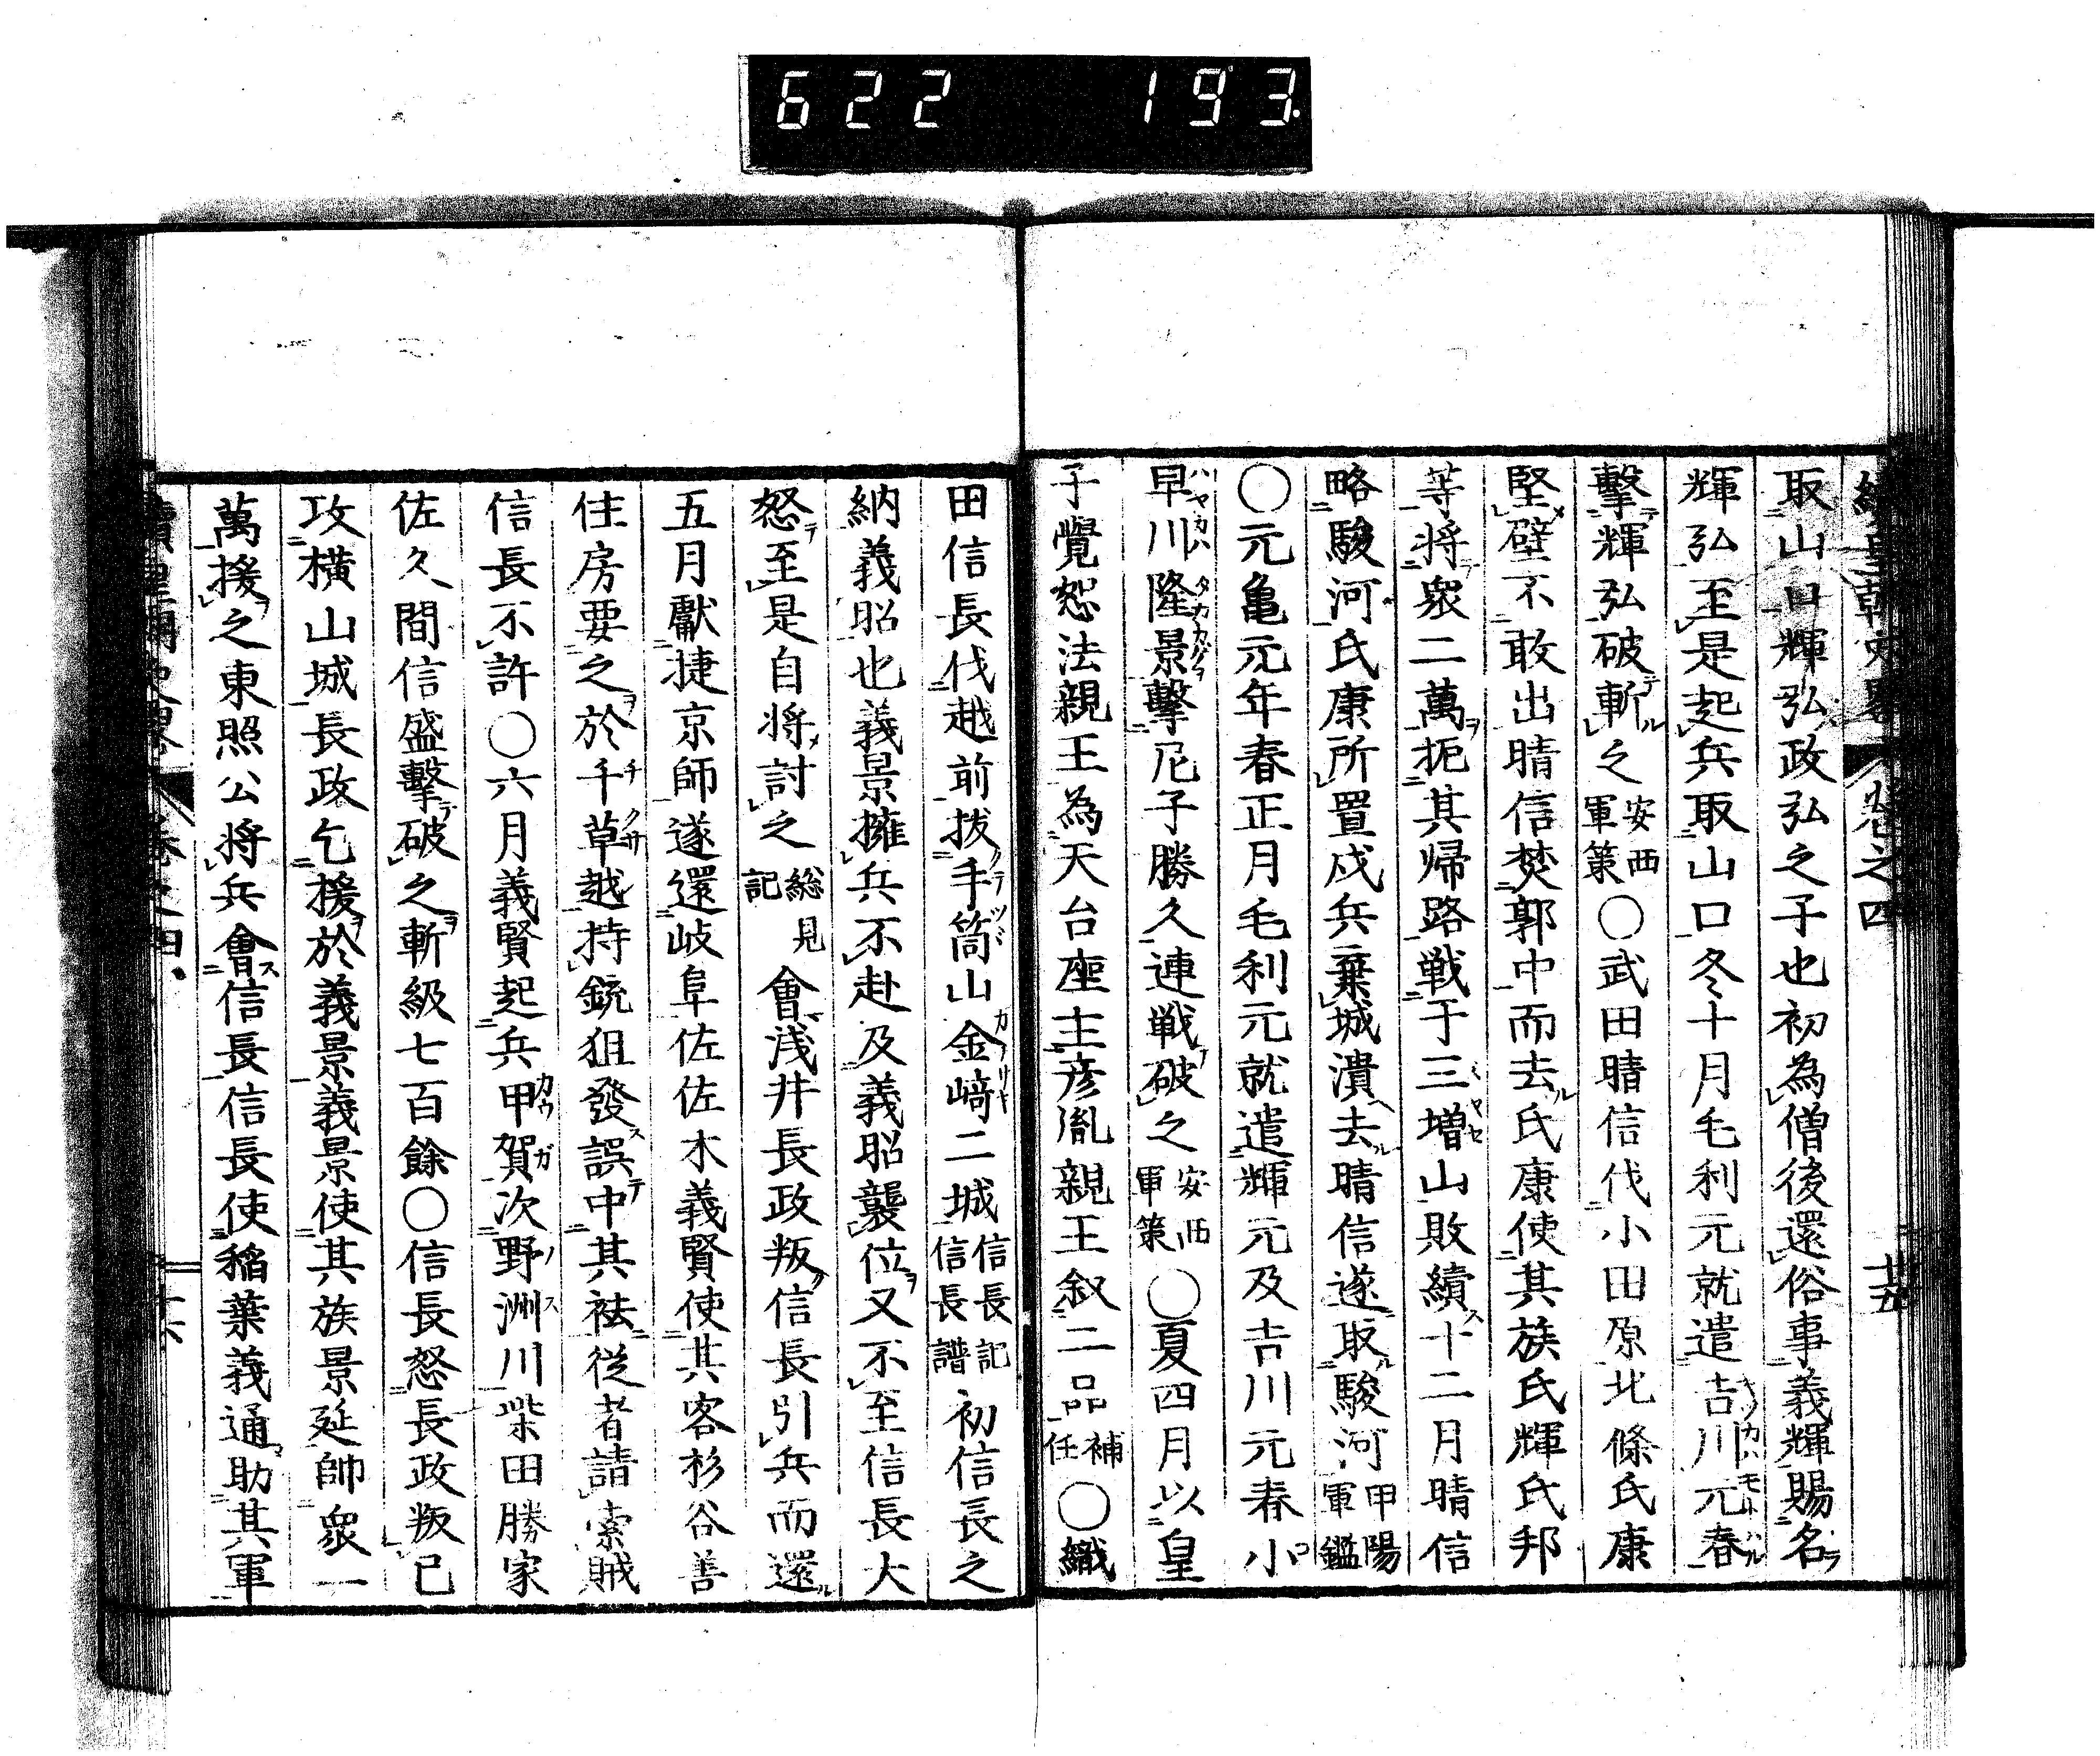 622 193
續皇朝史畧 卷之四 廿五
取山口輝弘政弘之子也初為僧後還俗事義輝賜名
輝弘至是起兵取山口冬十月毛利元就遣吉川元春
擊輝弘破斬之安西軍策○武田晴信伐小田原北條氏康
堅壁不敢出晴信焚郭中而去氏康使其族氏輝氏邦
等将衆二萬扼其帰路戦于三増山敗績十二月晴信
略駿河氏康所置戍兵棄城潰去晴信遂取駿河甲陽軍鑑
○元亀元年春正月毛利元就遣輝元及吉川元春小
早川隆景擊尼子勝久連戦破之安西軍策○夏四月以皇
子覺恕法親王為天台座主彦胤親王叙二品補任○織
田信長伐越前拔手筒山金﨑二城信長記信長譜初信長之
納義昭也義景擁兵不赴及義昭襲位又不至信長大
怒至是自将討之総見記會浅井長政叛信長引兵而還
五月獻捷京師遂還岐阜佐佐木義賢使其客杉谷善
住房要之於千草越持銃狙發誤中其袪從者請索賊
信長不許○六月義賢起兵甲賀次野洲川柴田勝家
佐久間信盛擊破之斬級七百餘○信長怒長政叛已
攻横山城長政乞援於義景義景使其族景延帥衆一
萬援之東照公将兵會信長信長使稲葉義通助其軍
續皇朝史畧 卷之四 廿六